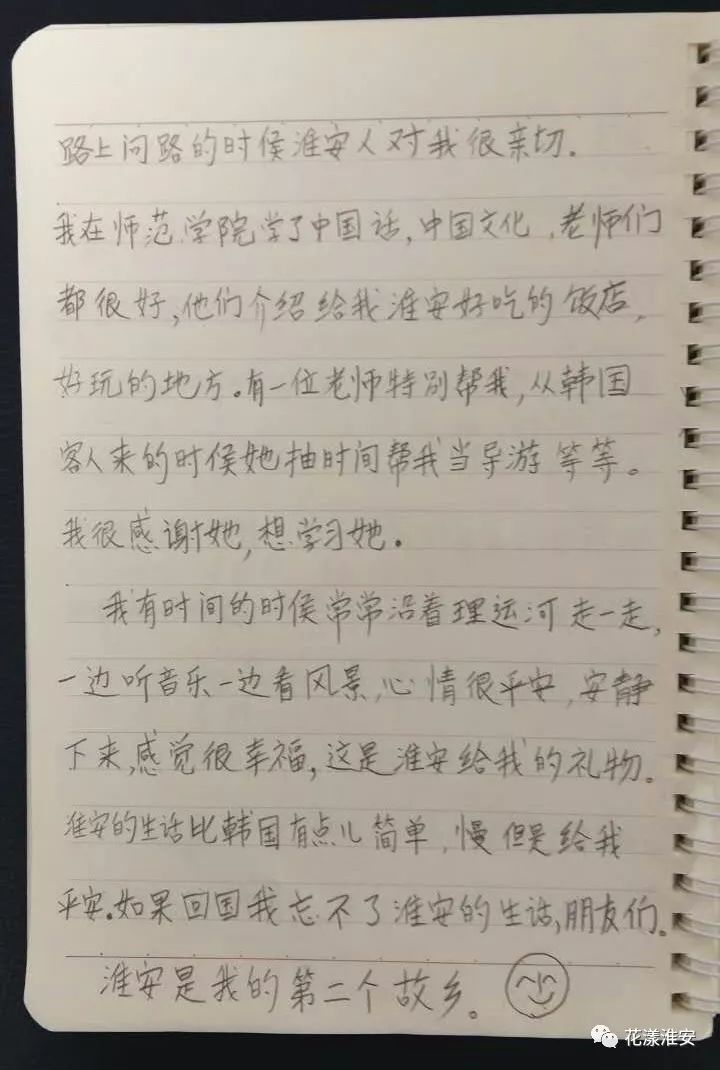 路上问路的时候淮安人对我很亲切.
我在师范学院学了中国话,中国文化,老师们
都很好,他们介绍给我淮安好吃的饭店,
好玩的地方.有一位老师特别帮我,从韩国
客人来的时候她抽时间帮我当导游等等。
我很感谢她,想学习她.
我有时间的时候常常沿着理运河走一走,
一边听音乐一边看风景,心情很平安,安静
下来,感觉很幸福,这是淮安给我的礼物.
淮安的生活比韩国有点儿简单,慢但是给我
平安.如果回国我忘不了淮安的生活,朋友们.
淮安是我的第二个故乡。
花漾淮安